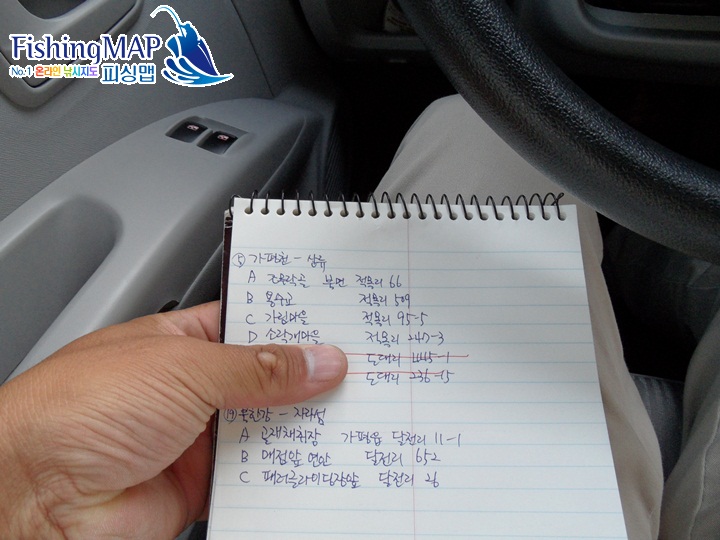 FishingMAP
No.1 온라인 낚시지도 피싱맵
⑤ 가평천 - 상류
A 조무락골 북면 적목리 66
B 용수교 적목리 509
C 가림마을 적목리 95-5
D 소락개마을 적목리 240-3
도대리 445-1
도대리 236-15
⑭ 북한강 - 자라섬
A 골재채취장 가평읍 달전리 11-1
B 매점앞 연안 달전리 652
C 패러글라이딩장앞 달전리 26